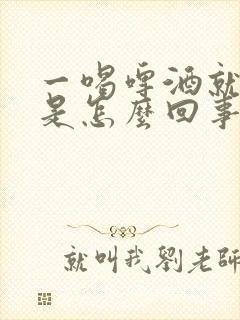 一喝啤酒就
是怎麼回事
就叫我劉老師